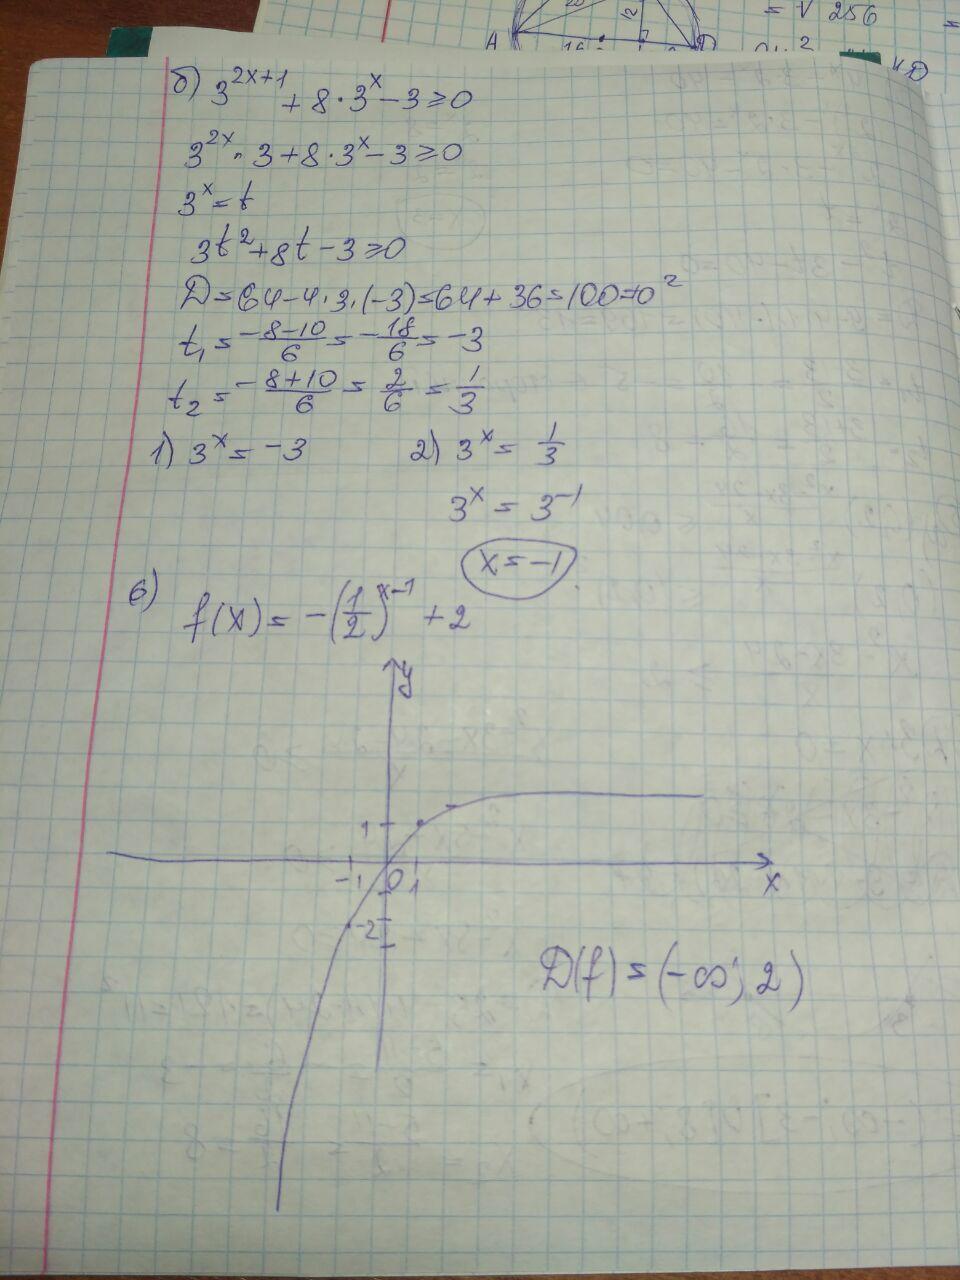 = √256
=
A
20
12
16
D
"D
б) 3^{2x+1} + 8·3^x - 3 ≥ 0
3^{2x} · 3 + 8·3^x - 3 ≥ 0
3^x = t
3t^2 + 8t - 3 ≥ 0
D = 64 - 4·3·(-3) = 64 + 36 = 100 = 10^2
t_1 = \frac{-8-10}{6} = -\frac{18}{6} = -3
t_2 = \frac{-8+10}{6} = \frac{2}{6} = \frac{1}{3}
1) 3^x = -3 2) 3^x = \frac{1}{3}
3^x = 3^{-1}
x = -1
6) f(x) = -(\frac{1}{2})^{x-1} + 2
y
1
-1 0 1 x
-2
D(f) = (-∞; 2)